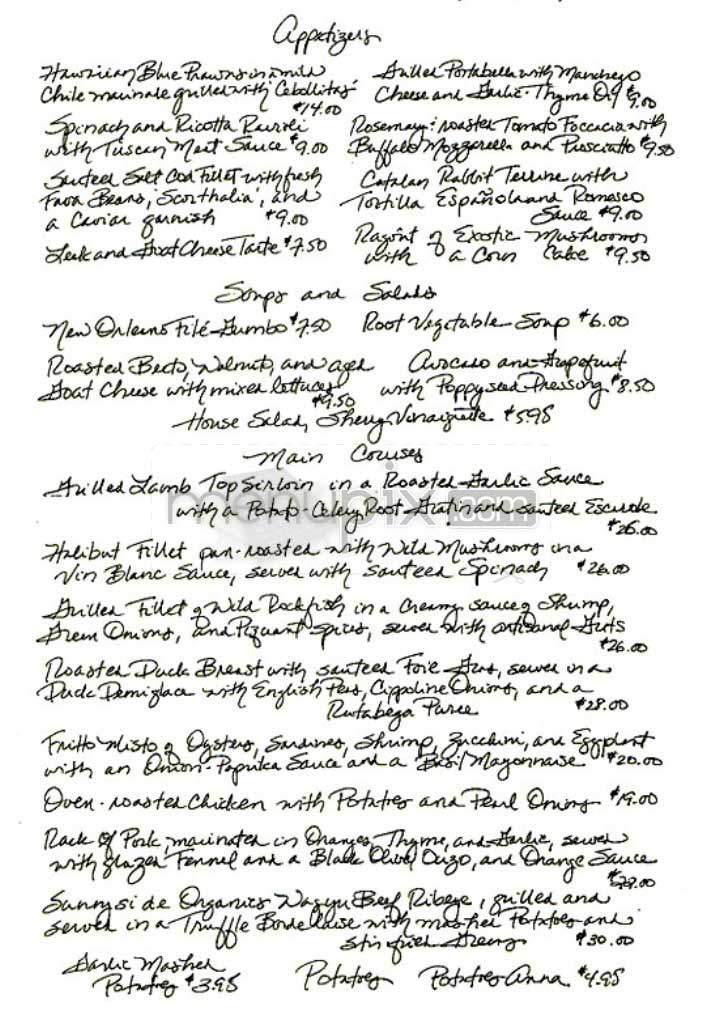 Appetizers
Hawaiian Blue Prawns in a mild
Chile marinade grilled with 'Cebollitas'
$14.00
Spinach and Ricotta Ravioli
with Tuscan Meat Sauce $9.00
Sauteed Salt Cod Fillet with fresh
Fava Beans, 'Scorthalia', and
a Caviar garnish $9.00
Leek and Goat Cheese Tarte $7.50
Grilled Portabella with Manchego
Cheese and Garlic-Thyme Oil $9.00
Rosemary-roasted Tomato Foccacia with
Buffalo Mozzarella and Prosciutto $9.50
Catalan Rabbit Terrine with
Tortilla Española and Romesco
Sauce $9.00
Ragôut of Exotic Mushrooms
with a Corn Cake $9.50
Soups and Salads
New Orleans Filé-Gumbo $7.50 Root Vegetable Soup $6.00
Roasted Beets, Walnuts, and aged
Goat Cheese with mixed lettuces
$9.50
Avocado and Grapefruit
with Poppyseed Dressing $8.50
House Salad, Sherry Vinaigrette $5.95
Main Courses
Grilled Lamb Top Sirloin in a Roasted-Garlic Sauce
with a Potato-Celery Root Gratin and sauteed Escarole
$26.00
Halibut Fillet pan-roasted with Wild Mushrooms in a
Vin Blanc Sauce, served with sauteed Spinach $26.00
Grilled Fillet of Wild Rockfish in a creamy sauce of Shrimp,
Green Onions, and Piquant Spices, served with artisanal Grits
$26.00
Roasted Duck Breast with sauteed Foie Gras, served in a
Duck Demiglace with English Peas, Cippoline Onions, and a
Rutabega Puree $28.00
Fritto Misto of Oysters, Sardines, Shrimp, Zucchini, and Eggplant
with an Onion-Paprika Sauce and a Basil Mayonnaise $20.00
Oven-roasted Chicken with Potatoes and Pearl Onions $19.00
Rack of Pork, marinated in Oranges, Thyme, and Garlic, served
with glazed Fennel and a Black Olive Orzo, and Orange Sauce
Sunnyside Organics Wagyu Beef Ribeye, grilled and
served in a Truffle Bordelaise with mashed Potatoes and
stir fried Greens $30.00
Garlic Mashed
Potatoes $3.95
Potatoes Potatoes Anna $4.95
menupix.com